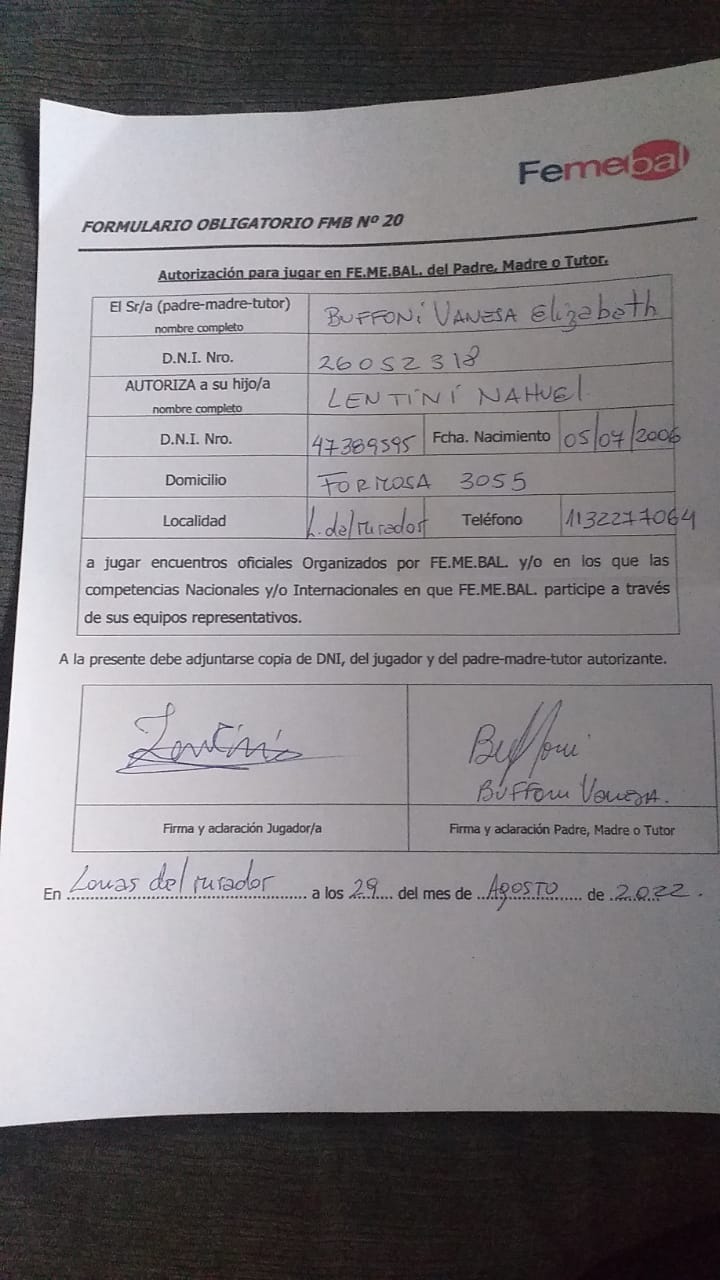 Femebal
FORMULARIO OBLIGATORIO FMB Nº 20
Autorización para jugar en FE.ME.BAL. del Padre, Madre o Tutor.
El Sr/a (padre-madre-tutor)
nombre completo
BUFFONI VANESA Elizabeth
D.N.I. Nro.
26052318
AUTORIZA a su hijo/a
nombre completo
LENTINI NAHUEL
D.N.I. Nro.
47389595
Fcha. Nacimiento
05/07/2006
Domicilio
FORMOSA 3055
Localidad
L. del mirador
Teléfono
1132277064
a jugar encuentros oficiales Organizados por FE.ME.BAL. y/o en los que las
competencias Nacionales y/o Internacionales en que FE.ME.BAL. participe a través
de sus equipos representativos.
A la presente debe adjuntarse copia de DNI, del jugador y del padre-madre-tutor autorizante.
Lentini
Buffoni
BUFFONI VANESA.
Firma y aclaración Jugador/a
Firma y aclaración Padre, Madre o Tutor
En Lomas del mirador a los 29 del mes de AGOSTO de 2022.